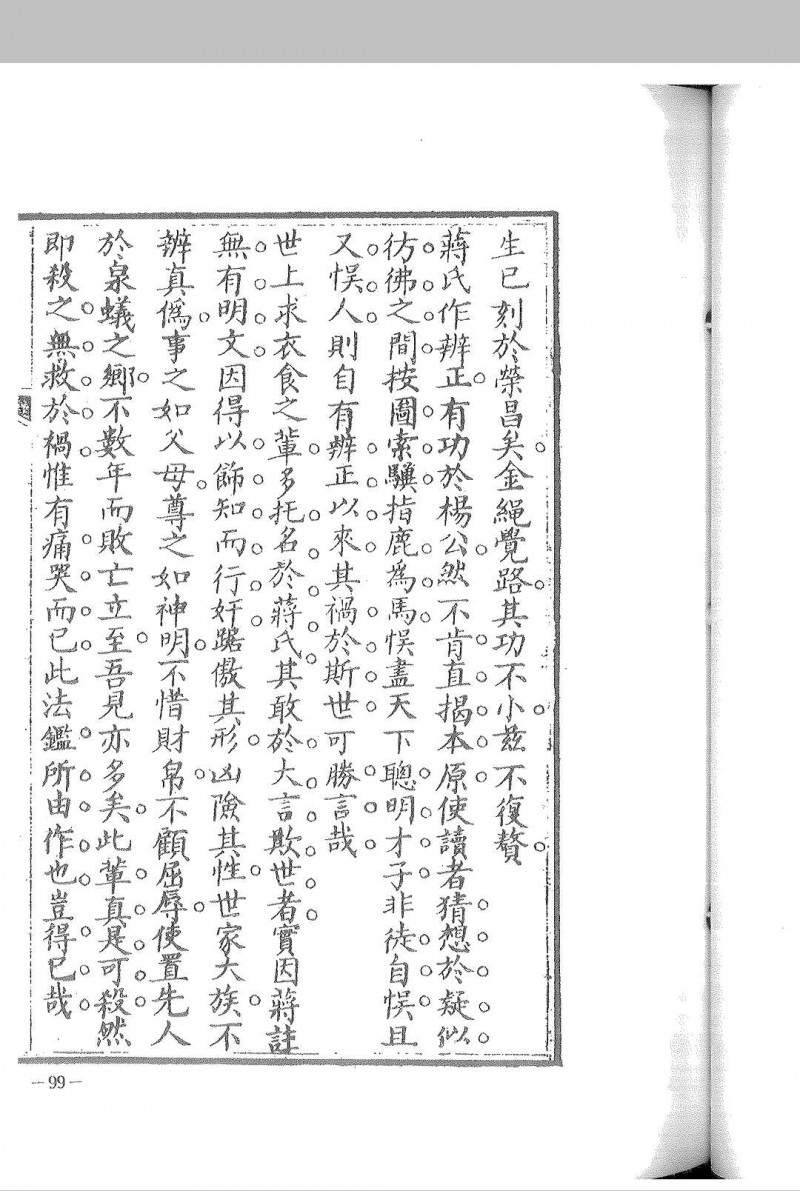 生已刻於榮昌矣金繩覺路其功不小茲不復贅
蔣氏作辨正有功於楊公然不肯直揭本原使讀者猜想於疑似
彷彿之間按圖索驥指鹿為馬悞盡天下聰明才子非徒自悞且
又悞人則自有辨正以來其禍於斯世可勝言哉
世上求衣食之輩多托名於蔣氏其敢於大言欺世者實因蔣註
無有明文因得以飾知而行奸踞傲其形凶險其性世家大族不
辨真僞事之如父母尊之如神明不惜財帛不顧屈辱使置先人
於泉蟻之鄉不數年而敗亡立至吾見亦多矣此輩真是可殺然
即殺之無救於禍惟有痛哭而已此法鑑所由作也豈得已哉
—99—